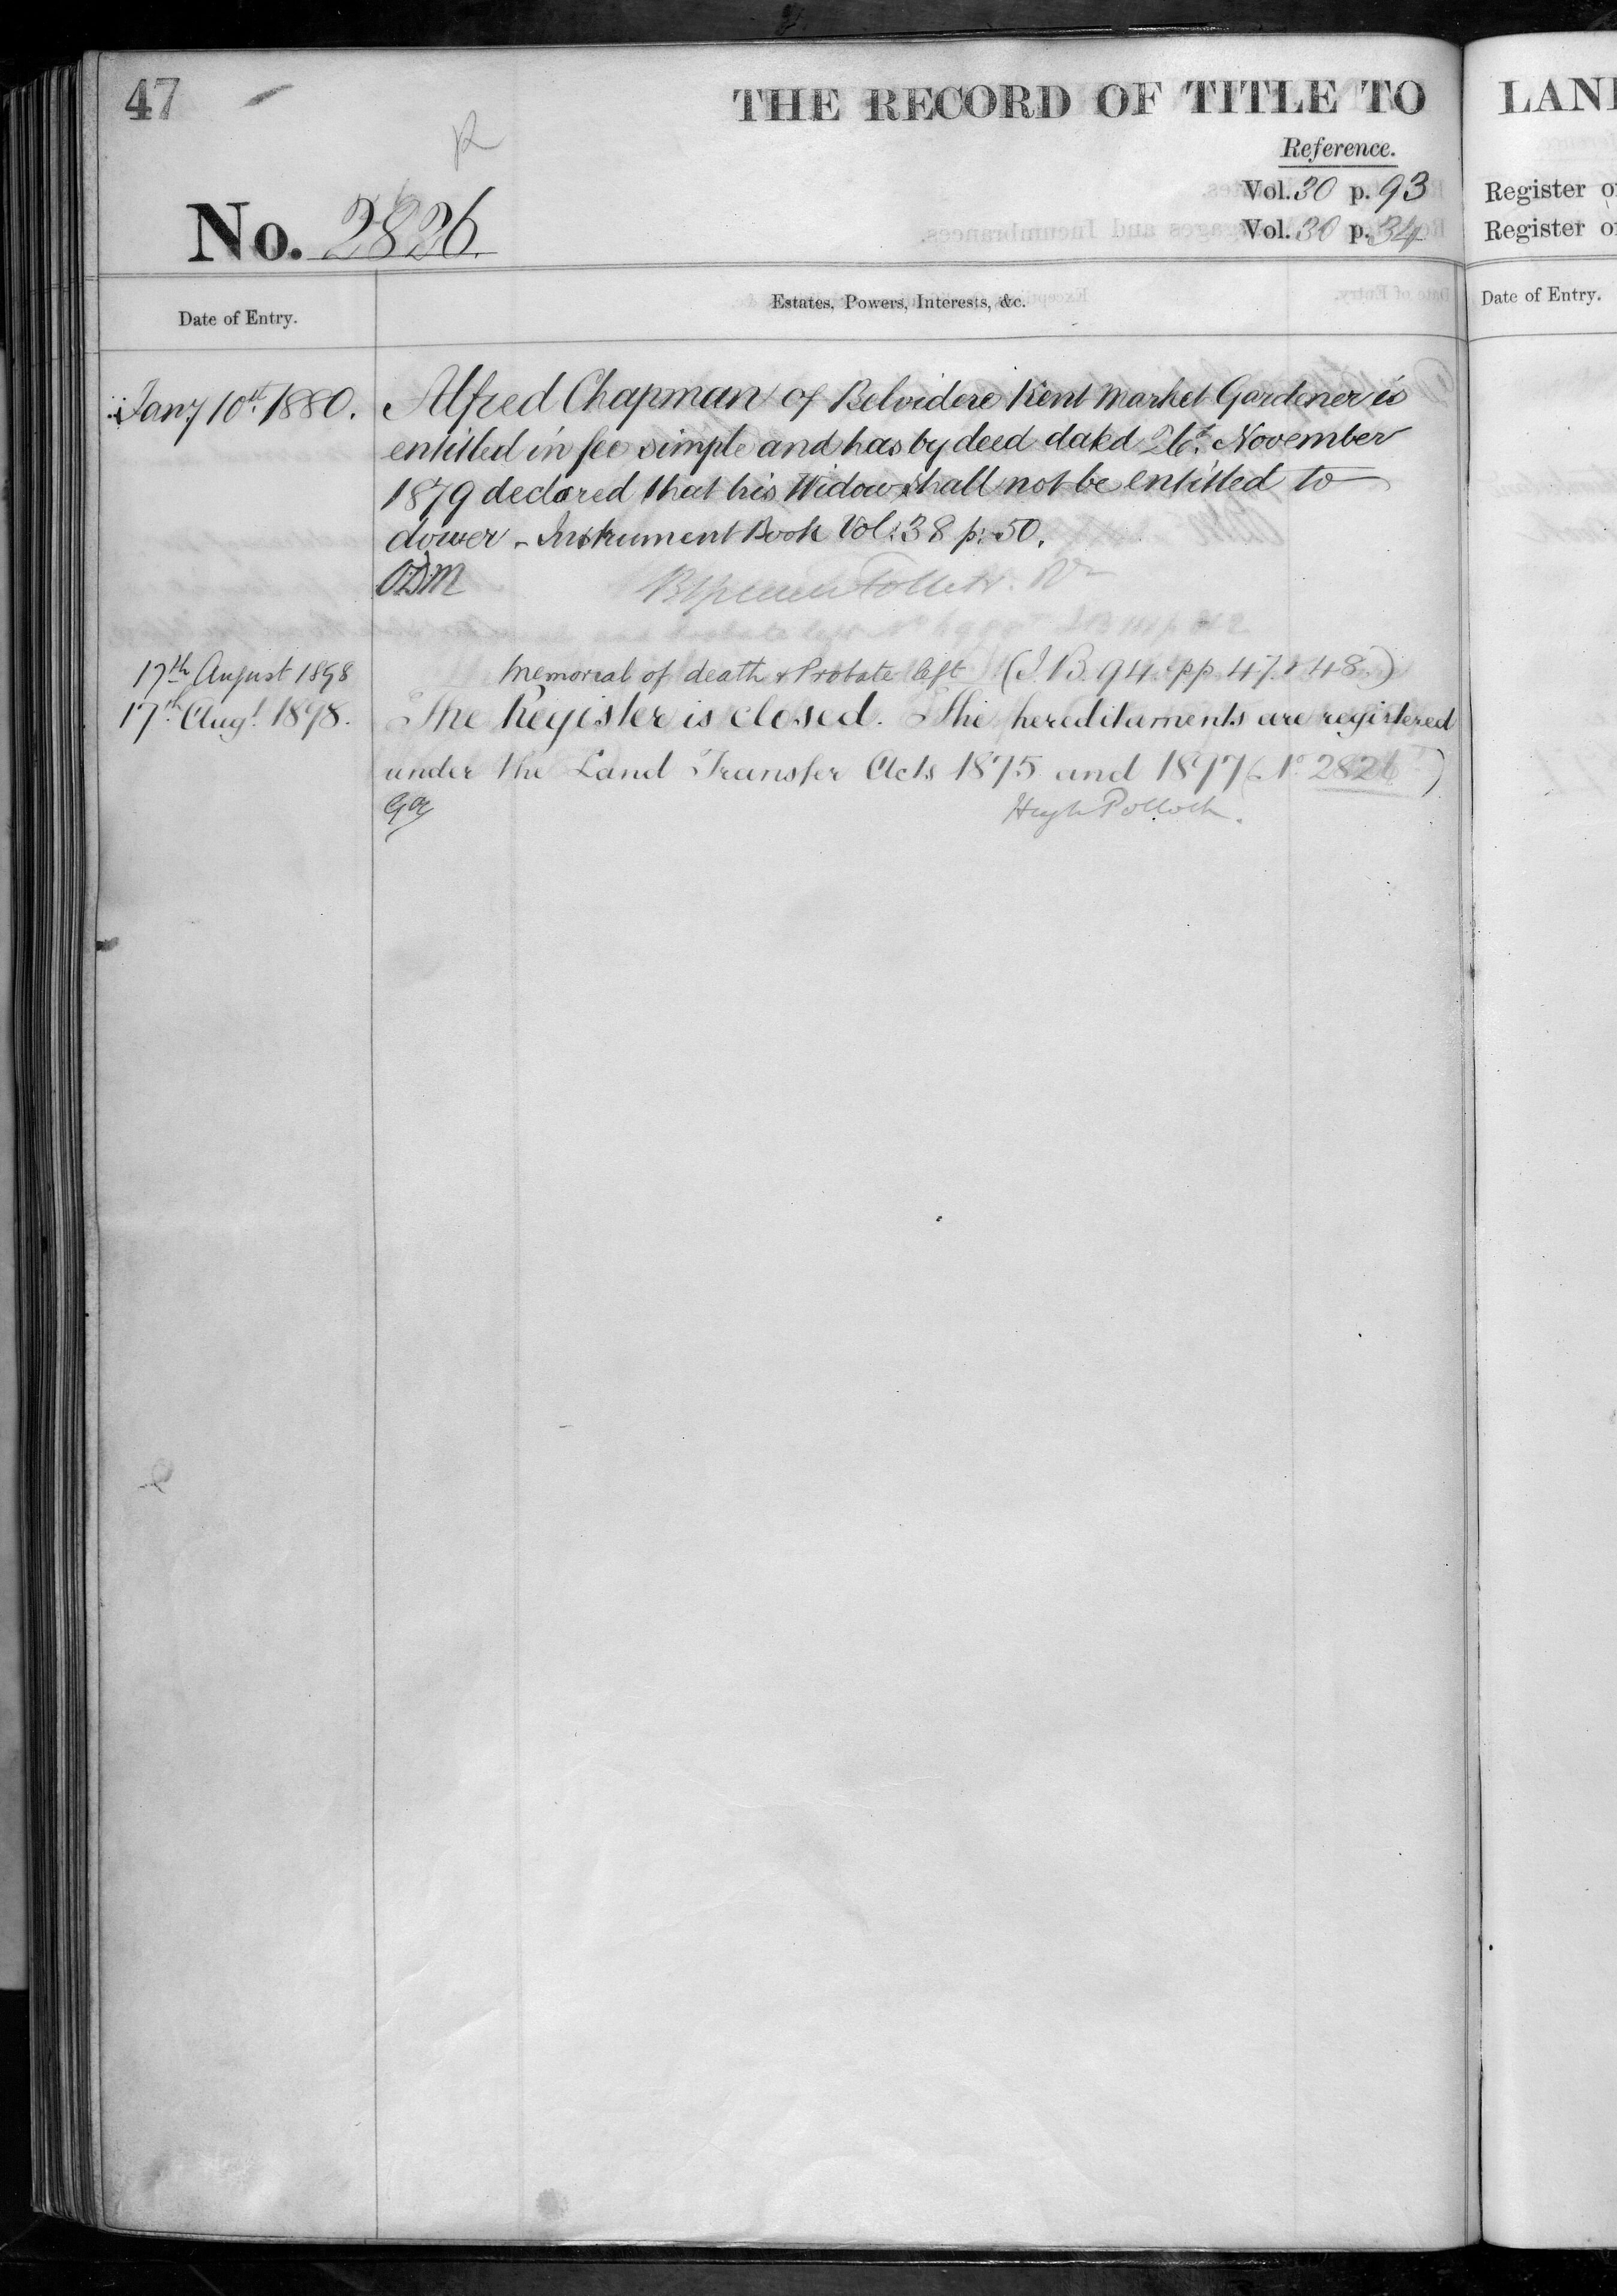 47
THE RECORD OF TITLE TO
LAN
Reference.
Vol. 30 p. 93
Vol. 30 p. 34
Register o
Register o
No. 2826.
Date of Entry.
Estates, Powers, Interests, &c.
Date of Entry.
Jany 10th 1880.
Alfred Chapman of Belvidere Kent Market Gardener is
entitled in fee simple and has by deed dated 26th November
1879 declared that his Widow shall not be entitled to
dower - Instrument Book Vol: 38 p: 50.
17th August 1898
Memorial of death & Probate left (I.B. 94. pp. 47 & 48.)
17th Augt. 1898.
The Register is closed. The hereditaments are registered
under the Land Transfer Acts 1875 and 1897 (No 2826)
Hugh Pollock.